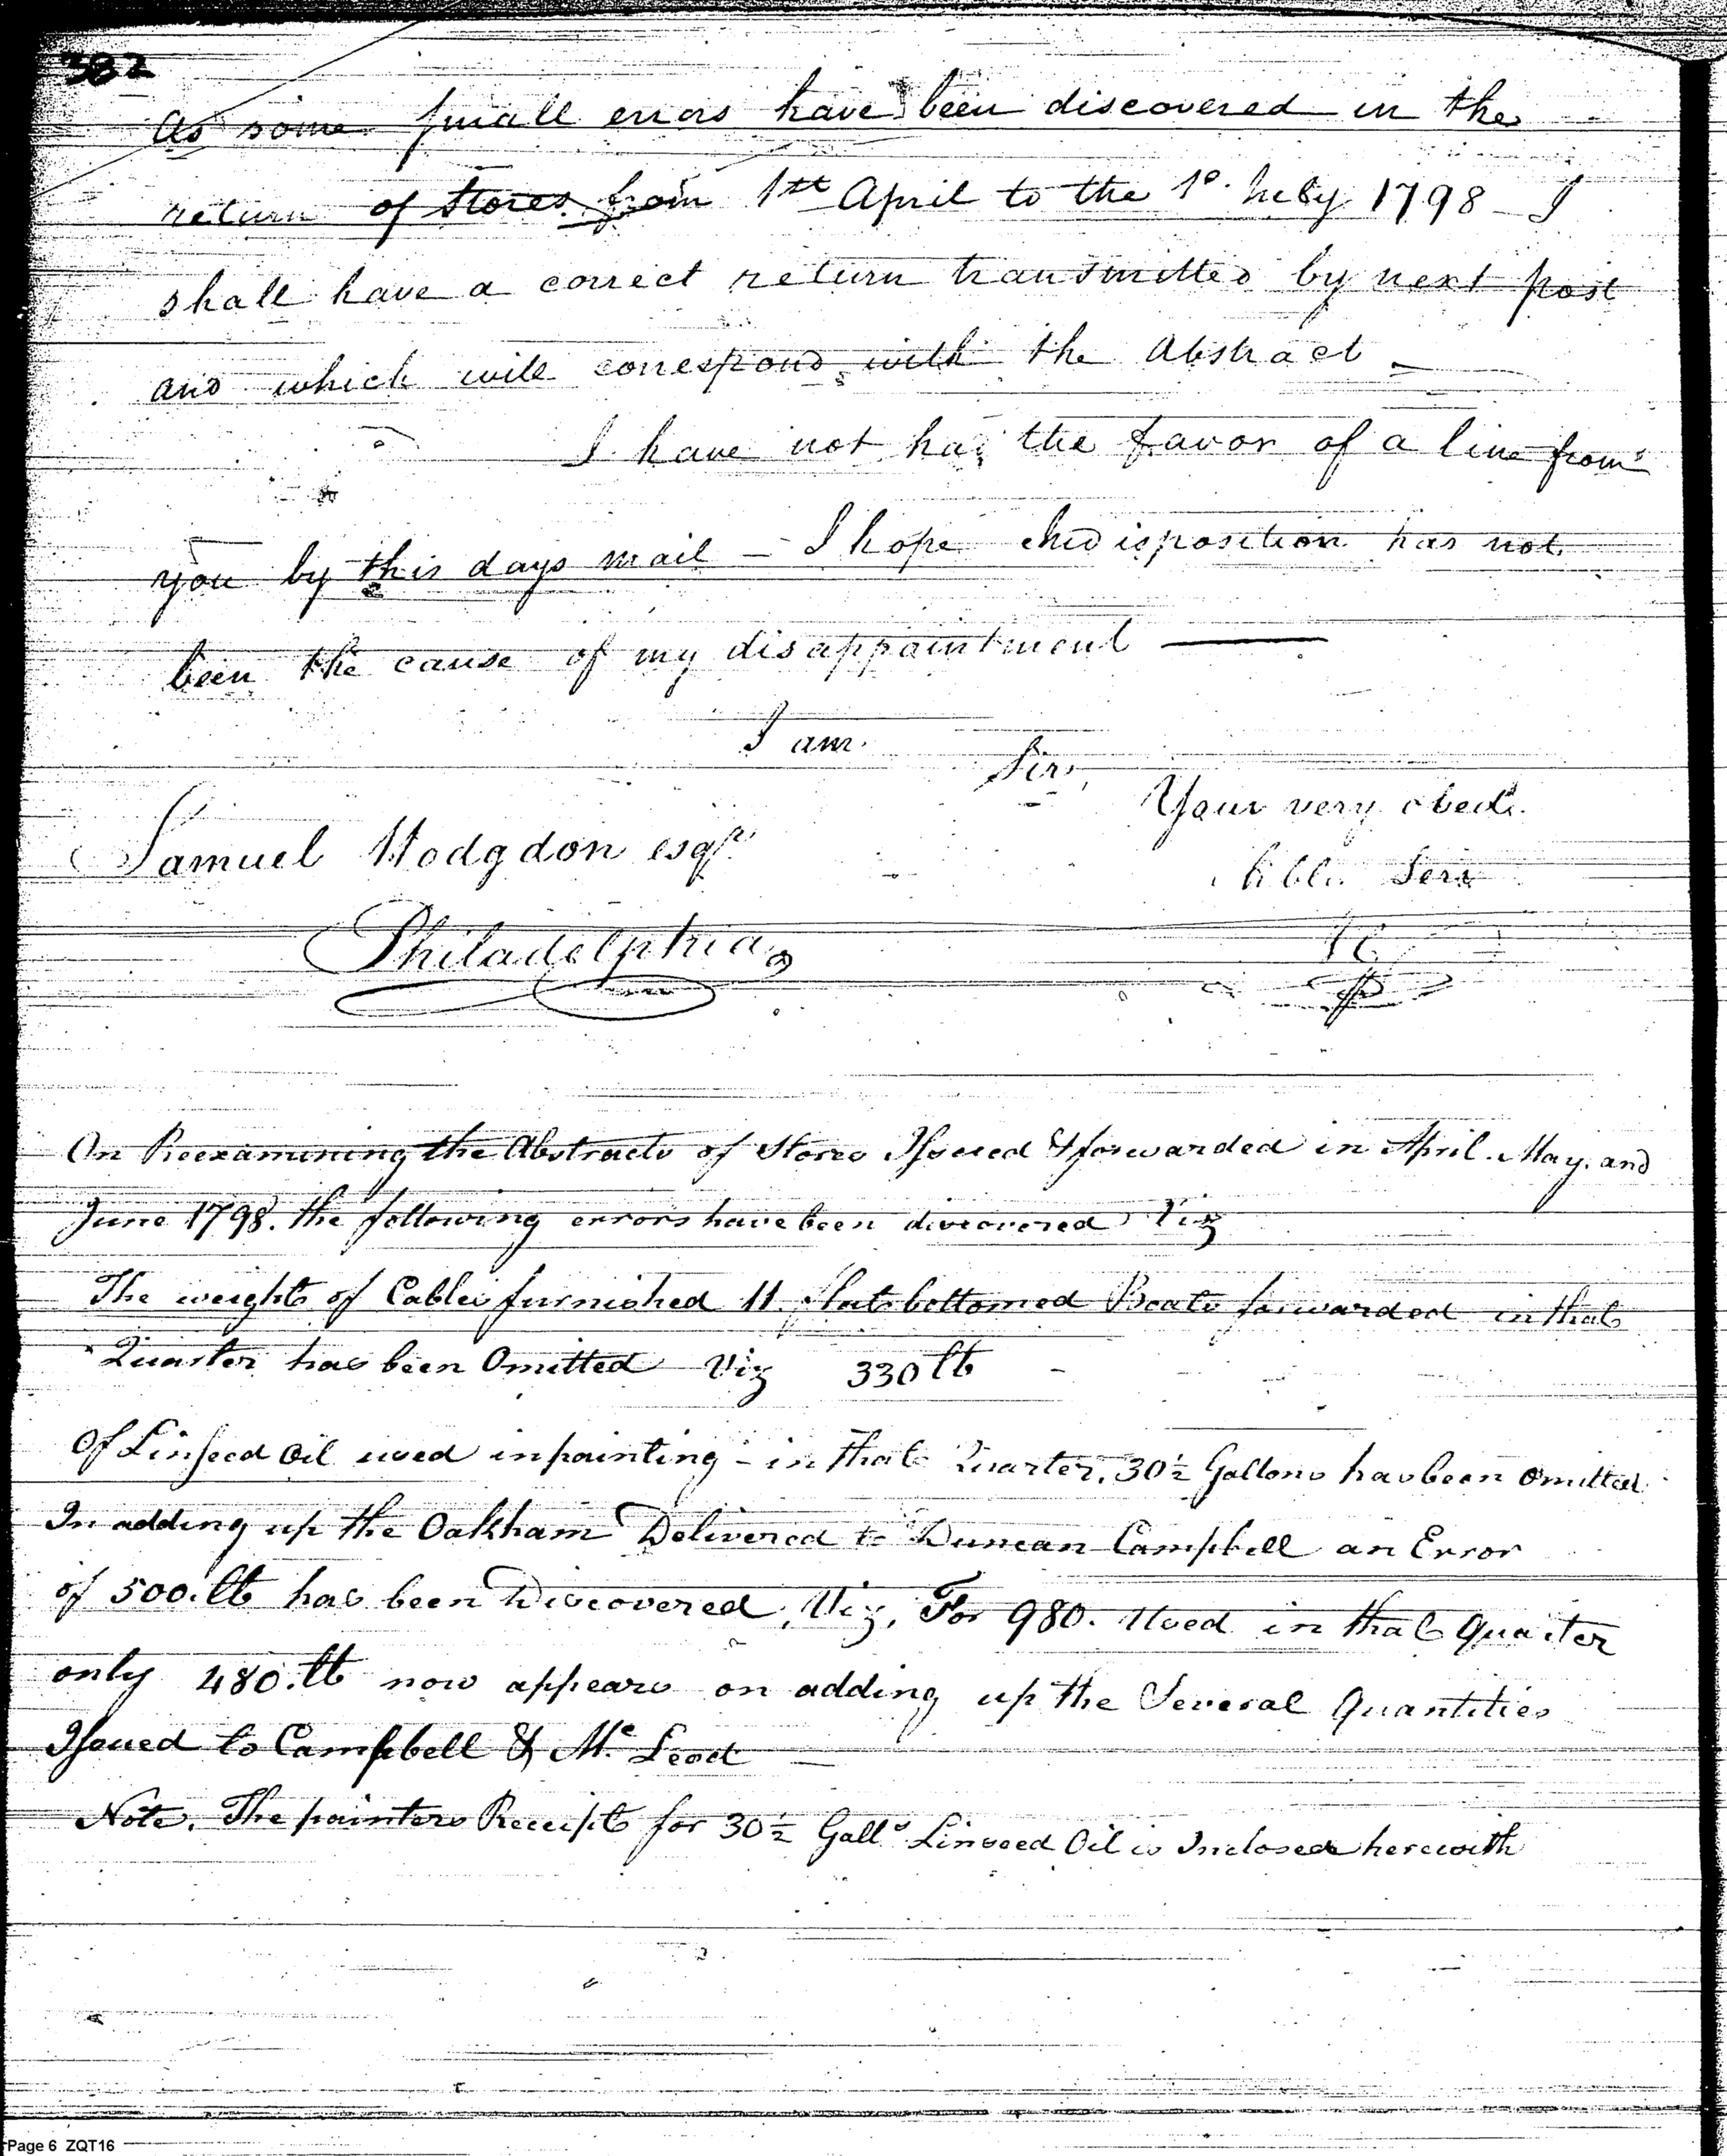 382
As some small errors have been discovered in the
return of Stores from 1st April to the 1o. July 1798 – I
shall have a correct return transmitted by next post
and which will correspond with the Abstract –
I have not had the favor of a line from
you by this days mail – I hope Indisposition has not
been the cause of my disappointment ——
I am
Sir,
Your very obedt.
hble. Serv
Samuel Hodgdon esqr.
Philadelphia
On Reexamining the Abstracts of Stores Issued & forwarded in April. May. and
June 1798. the following errors have been discovered Viz
The weight of Cables furnished 11. flat bottomed Boats forwarded in that
Quarter has been Omitted Viz 330 lb –
Of Linseed Oil used in painting – in that Quarter, 30½ Gallons has been Omitted
In adding up the Oakham Delivered to Duncan Campbell an Error
of 500. lb has been Discovered, Viz, For 980. Used in that Quarter
only 480. lb now appears on adding up the Several Quantities
Issued to Campbell & Mc Leod
Note. The painters Receipt for 30½ Galls Linseed Oil is Inclosed herewith
Page 6 ZQT16